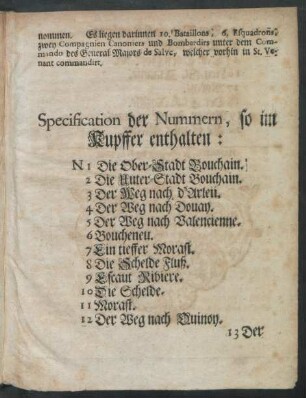 nommen. Es liegen darinnen 10. Bataillons, 6. Esquadrons,
zwey Compagnien Canoniers und Bombardirs unter dem Com-
mando des General Majors de Salve, welcher vorhin in St. Ve-
nant commandirt.
Specification der Nummern, so im
Kupffer enthalten:
N 1 Die Ober-Stadt Bouchain.
2 Die Unter-Stadt Bouchain.
3 Der Weg nach d'Arleu.
4 Der Weg nach Douay.
5 Der Weg nach Valencienne.
6 Boucheneu.
7 Ein tieffer Morast.
8 Die Schelde Fluß.
9 Escaut Ribiere.
10 Die Schelde.
11 Morast.
12 Der Weg nach Quinoy.
13 Der